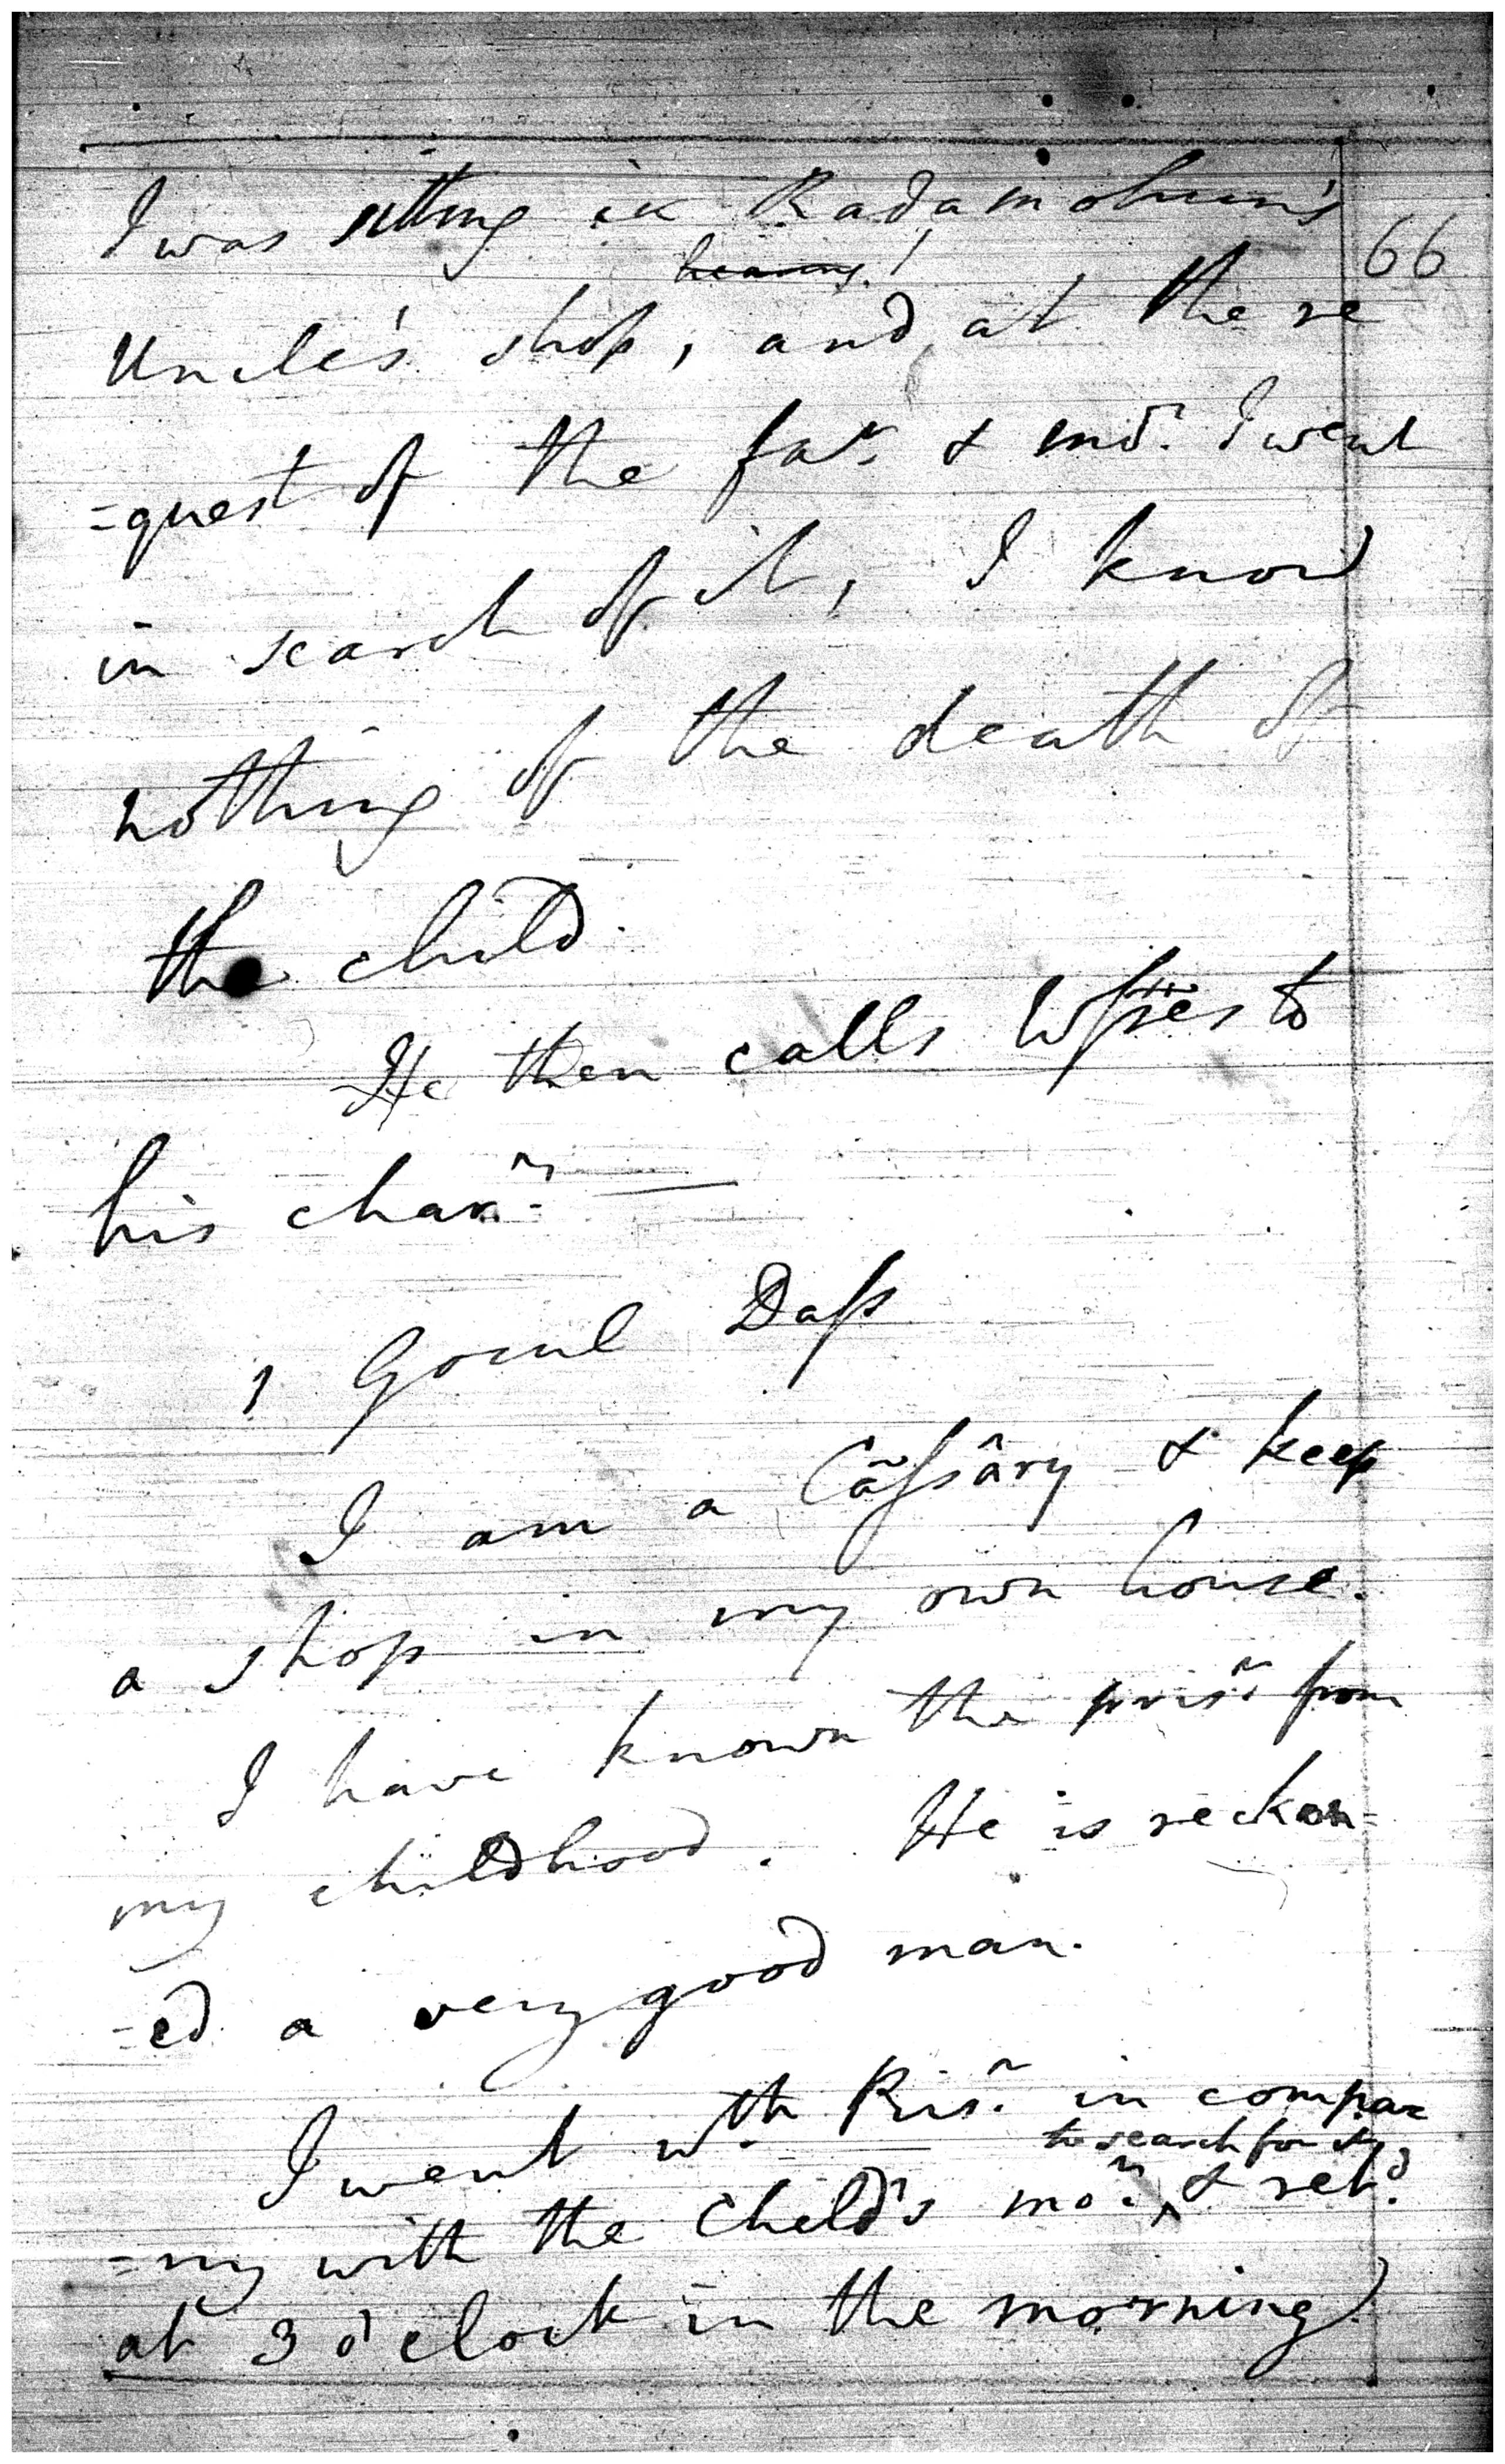 I was sitting in Radamohun's
66
hearing
Uncle's shop, and at the re
=quest of the far. & mor. I went
in search of it, I know
nothing of the death of
the child.
He then calls Wsses to
his charr. —
1 Gocul Dass
I am a Câssâry & keep
a shop in my own house.
I have known the prisr. from
my childhood. He is reckon=
=ed a very good man.
I went wth Prisr. in compa=
to search for it,
=ny with the Child's mor. & retd.
at 3 o'clock in the morning